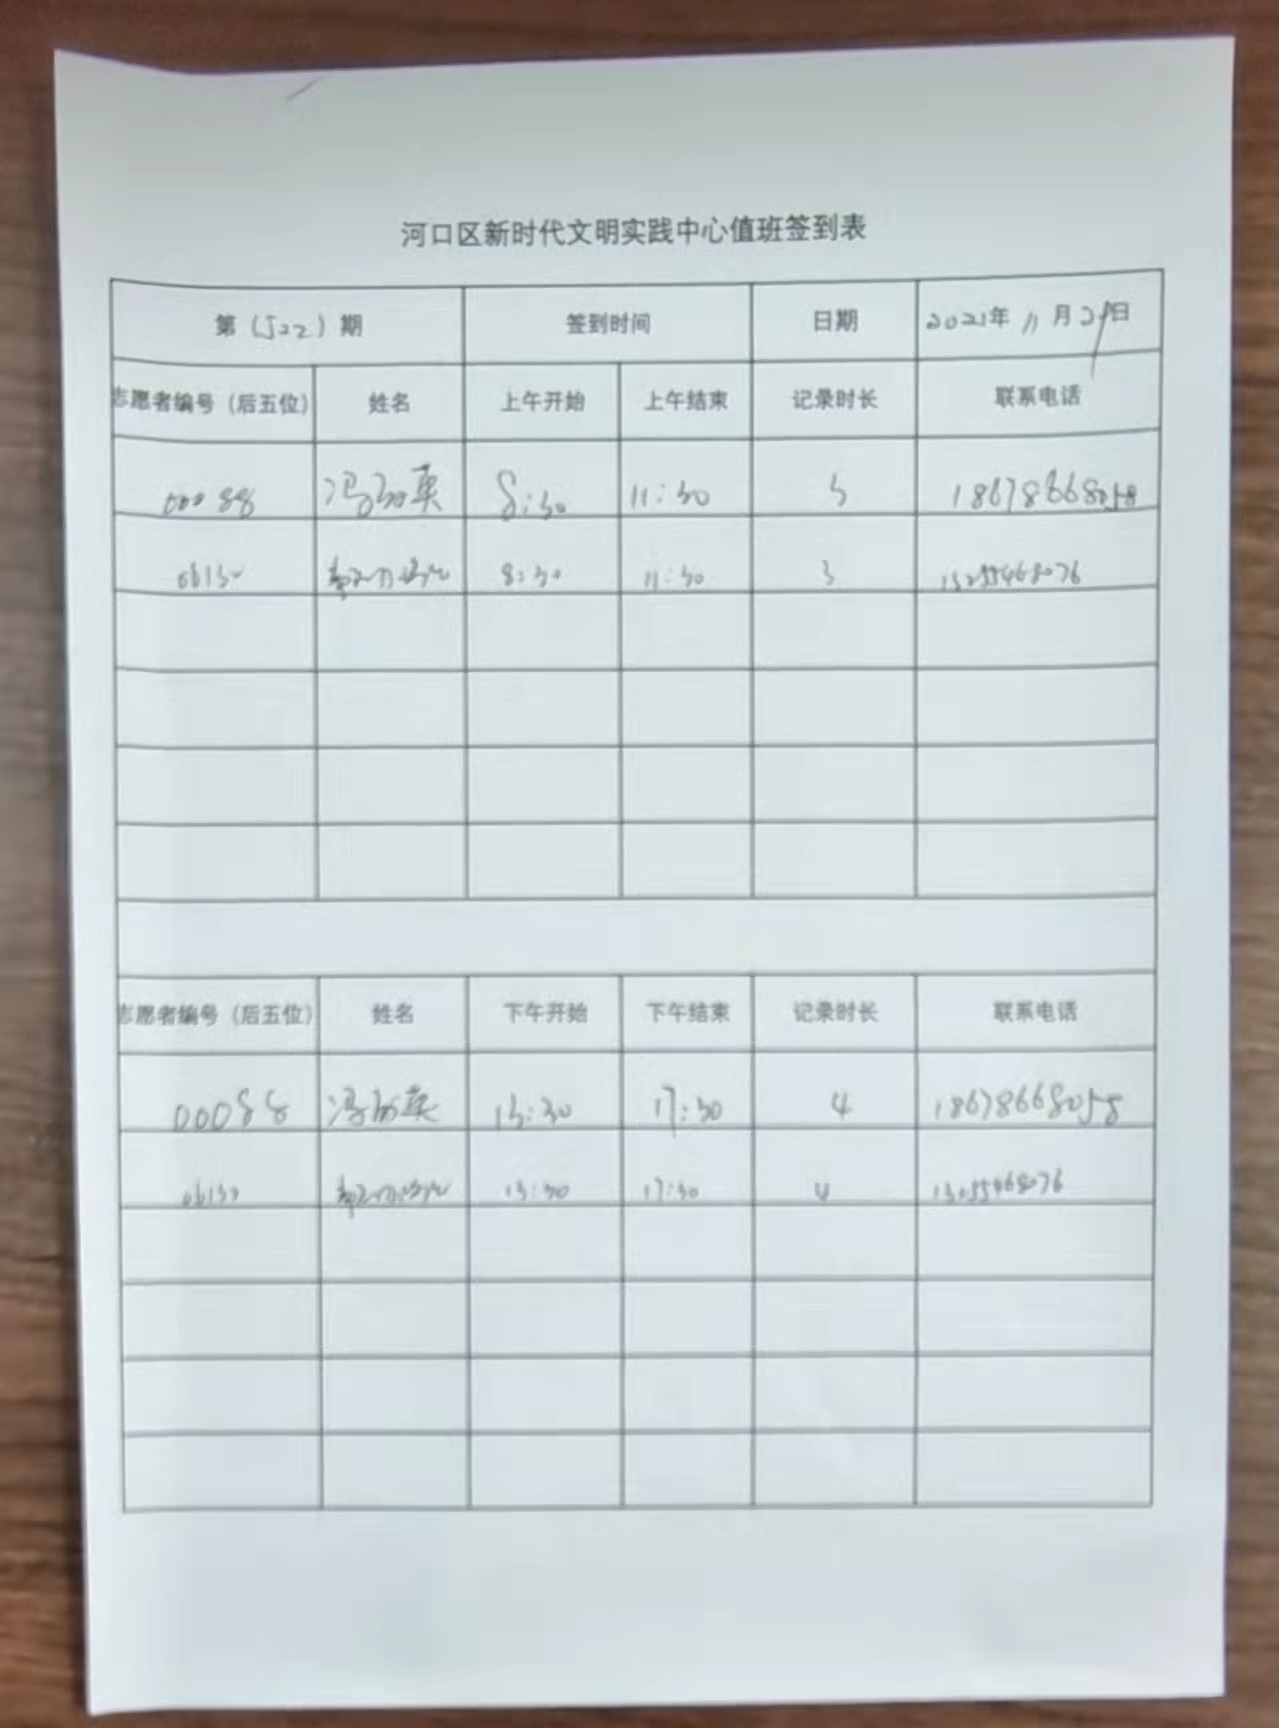 河口区新时代文明实践中心值班签到表
第（522）期 签到时间 日期 2021年 11月29日
志愿者编号（后五位） 姓名 上午开始 上午结束 记录时长 联系电话
00088 冯 英 8:30 11:30 3 18678668058
06130 8:30 11:30 3 13255468076
志愿者编号（后五位） 姓名 下午开始 下午结束 记录时长 联系电话
00088 冯 英 13:30 17:30 4 18678668058
06130 13:30 17:30 4 13255468076